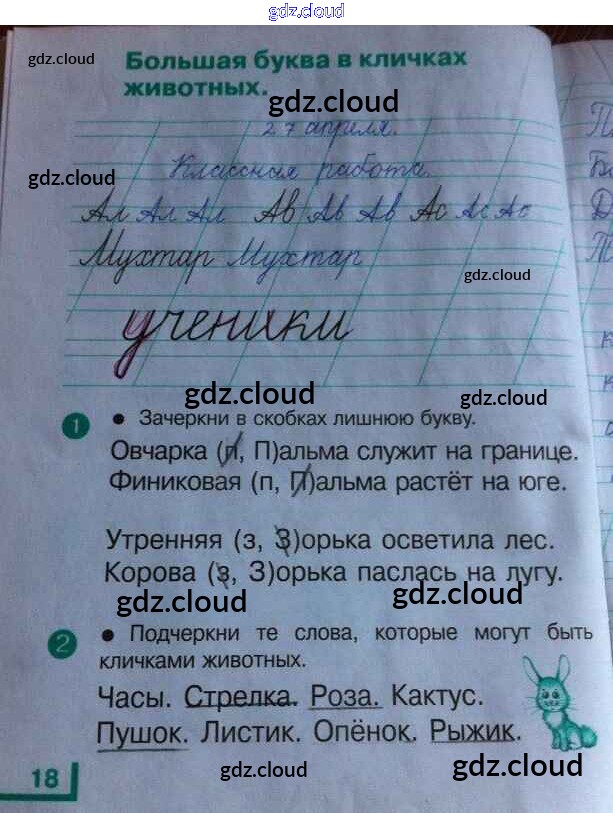 gdz.cloud
gdz.cloud
Большая буква в кличках
животных.
gdz.cloud
27 апреля.
Классная работа.
gdz.cloud
Ал Ал Ал Ав Ав Ав Ас Ас Ас
Мухтар Мухтар
gdz.cloud
ученики
gdz.cloud
gdz.cloud
1 • Зачеркни в скобках лишнюю букву.
Овчарка (п, П)альма служит на границе.
Финиковая (п, П)альма растёт на юге.
Утренняя (з, З)орька осветила лес.
Корова (з, З)орька паслась на лугу.
gdz.cloud
gdz.cloud
2 • Подчеркни те слова, которые могут быть
кличками животных.
Часы. Стрелка. Роза. Кактус.
Пушок. Листик. Опёнок. Рыжик.
18
gdz.cloud
gdz.cloud